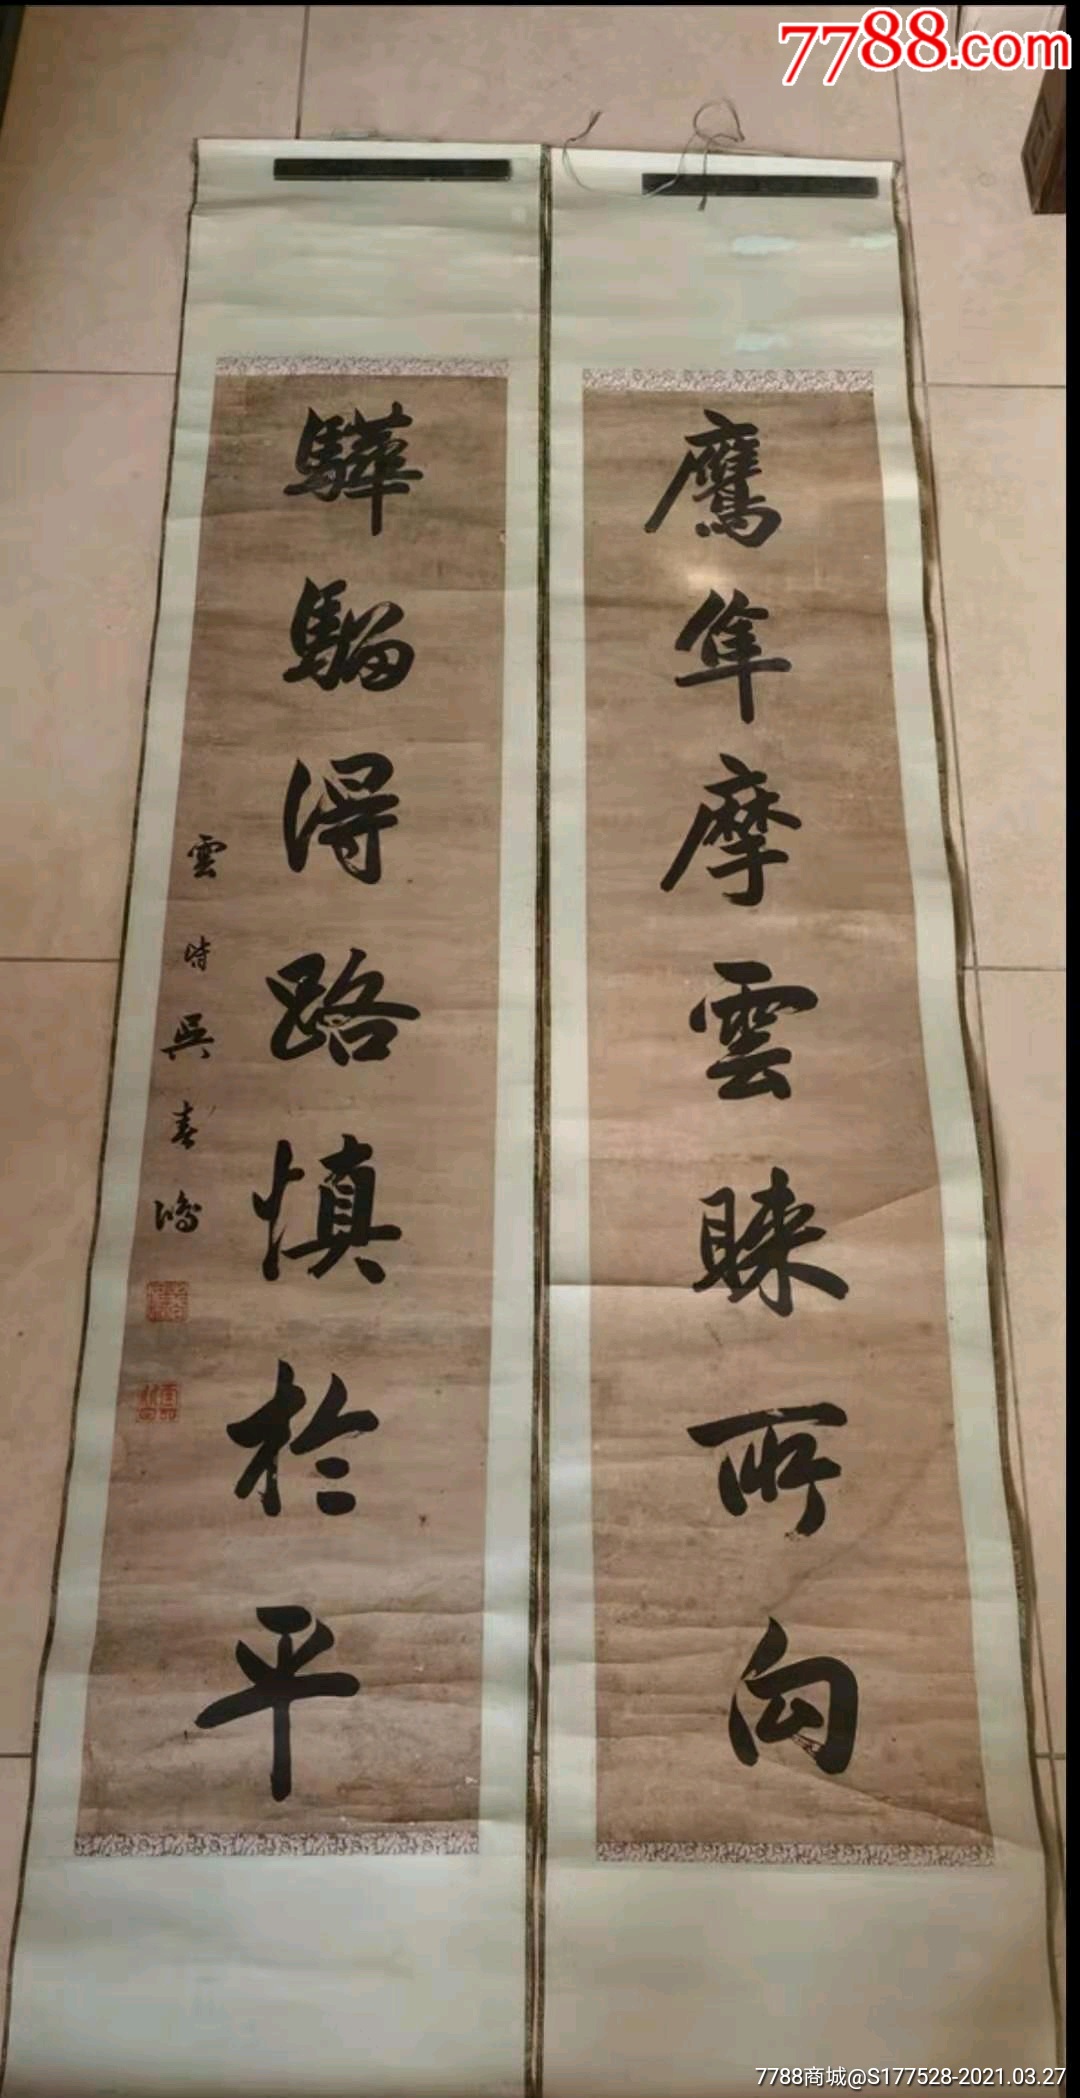 7788.com
鷹隼摩雲睞所向
驊騮得路慎於平
雲
吳春
鴻
7788商城@S177528-2021.03.27